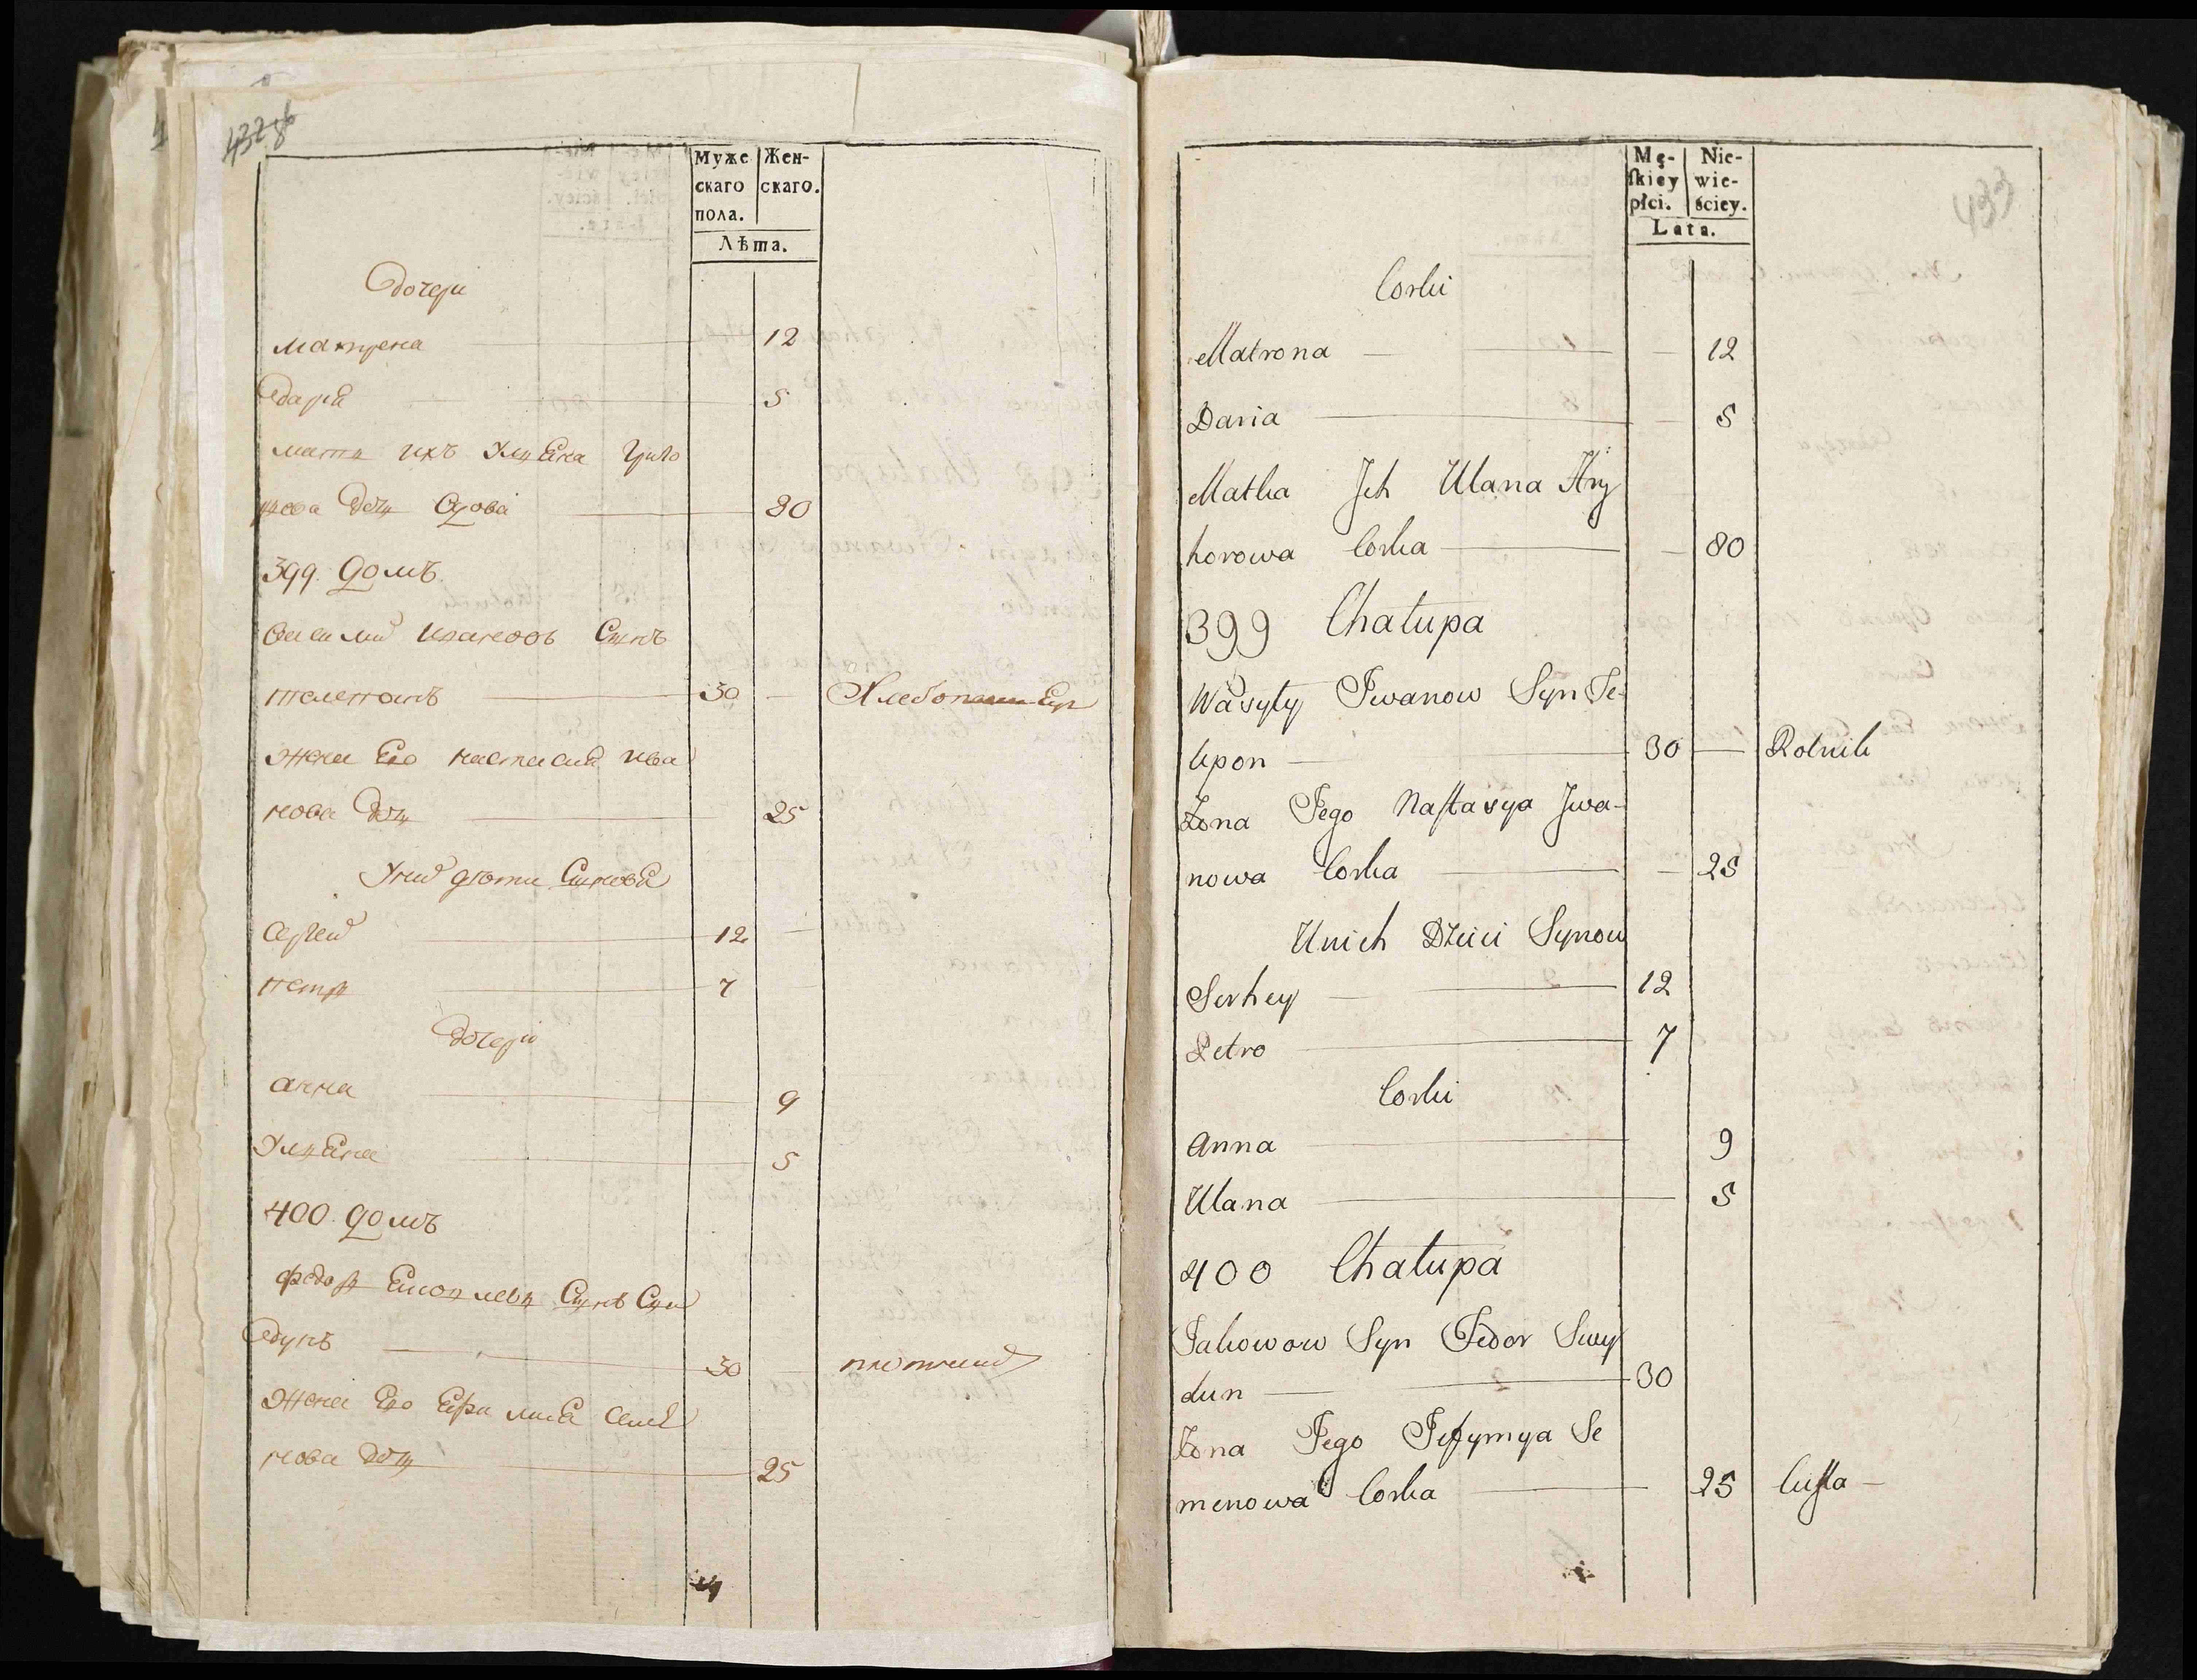 432 об
Муже Жен-
скаго скаго.
пола.
Лѣта.
Дочери
Матрена 12
Дарія 5
мати ихъ Ульяна Григо
рьева дочь вдова 80
399. Домъ
Василий Ивановъ Сынъ
30 — Хлебопашец
Жена Его Настасия Ива
нова дочь 25
У них дѣти Сыновья
Сергей 12 —
петръ 7
Дочери
анна 9
Ульяна 5
400. Домъ
Федор Сынъ Сви
дунъ 30 плотник
Жена Его Ефимия Семе
нова дочь 25
433
Mę- Nie-
ſkiey wie-
płci. ściey.
Lata.
Corki
Matrona — — 12
Daria — 5
Matka Jch Ulana Hry
horowa Corka — 80
399 Chałupa
Wasyly Jwanow Syn Te-
lipon 30 — Rolnik
Żona Jego Naſtasya Jwa-
nowa Corka — 25
Unich Dzieci Synow
Serhey 12
Petro 7
Corki
Anna 9
Ulana 5
400 Chałupa
Jakowow Syn Fedor Swy
dun — 30
Żona Jego Jefymya Se
menowa Corka 25 Cieſla —